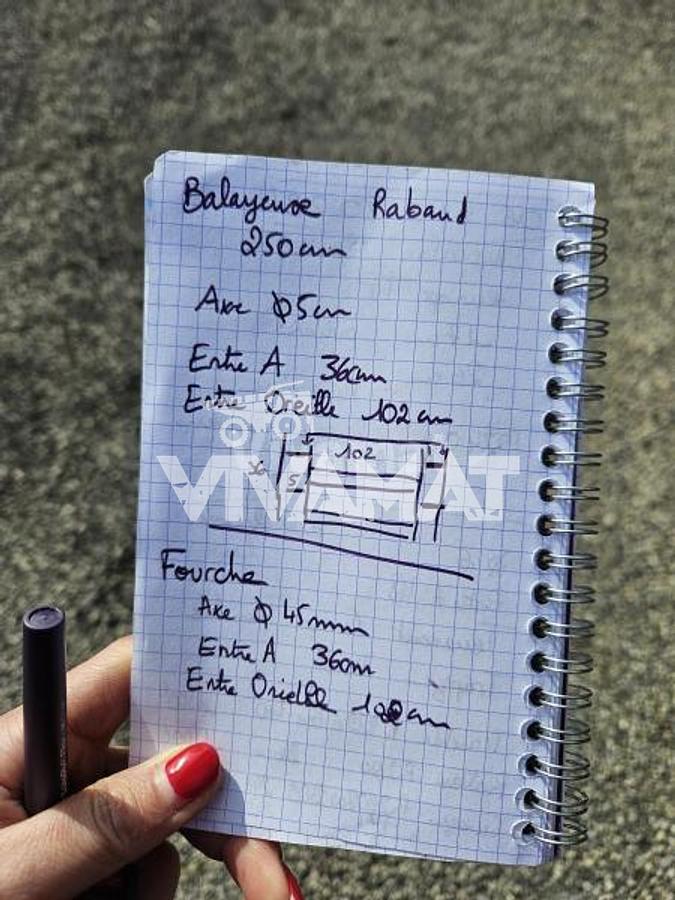 Balayeuse Rabaud
250cm
Axe Φ5cm
Entre A 36cm
Entre Oreille 102cm
102
5
VIVAMAT
Fourche
Axe Φ 45mm
Entre A 36cm
Entre Orielle cm